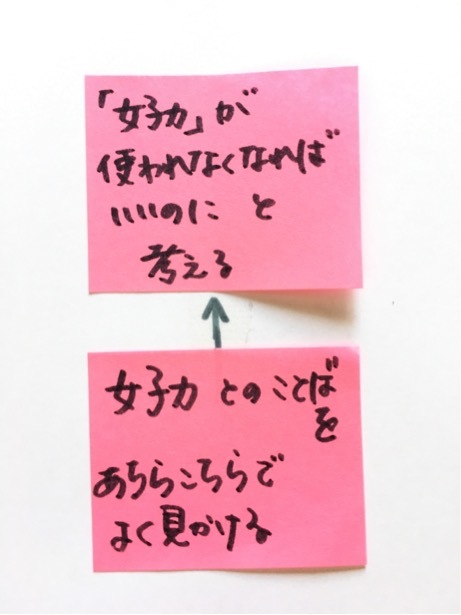 「女子力」が
使われなくなれば
いいのに と
考える
女子力 とのことば
を
あちらこちらで
よく見かける